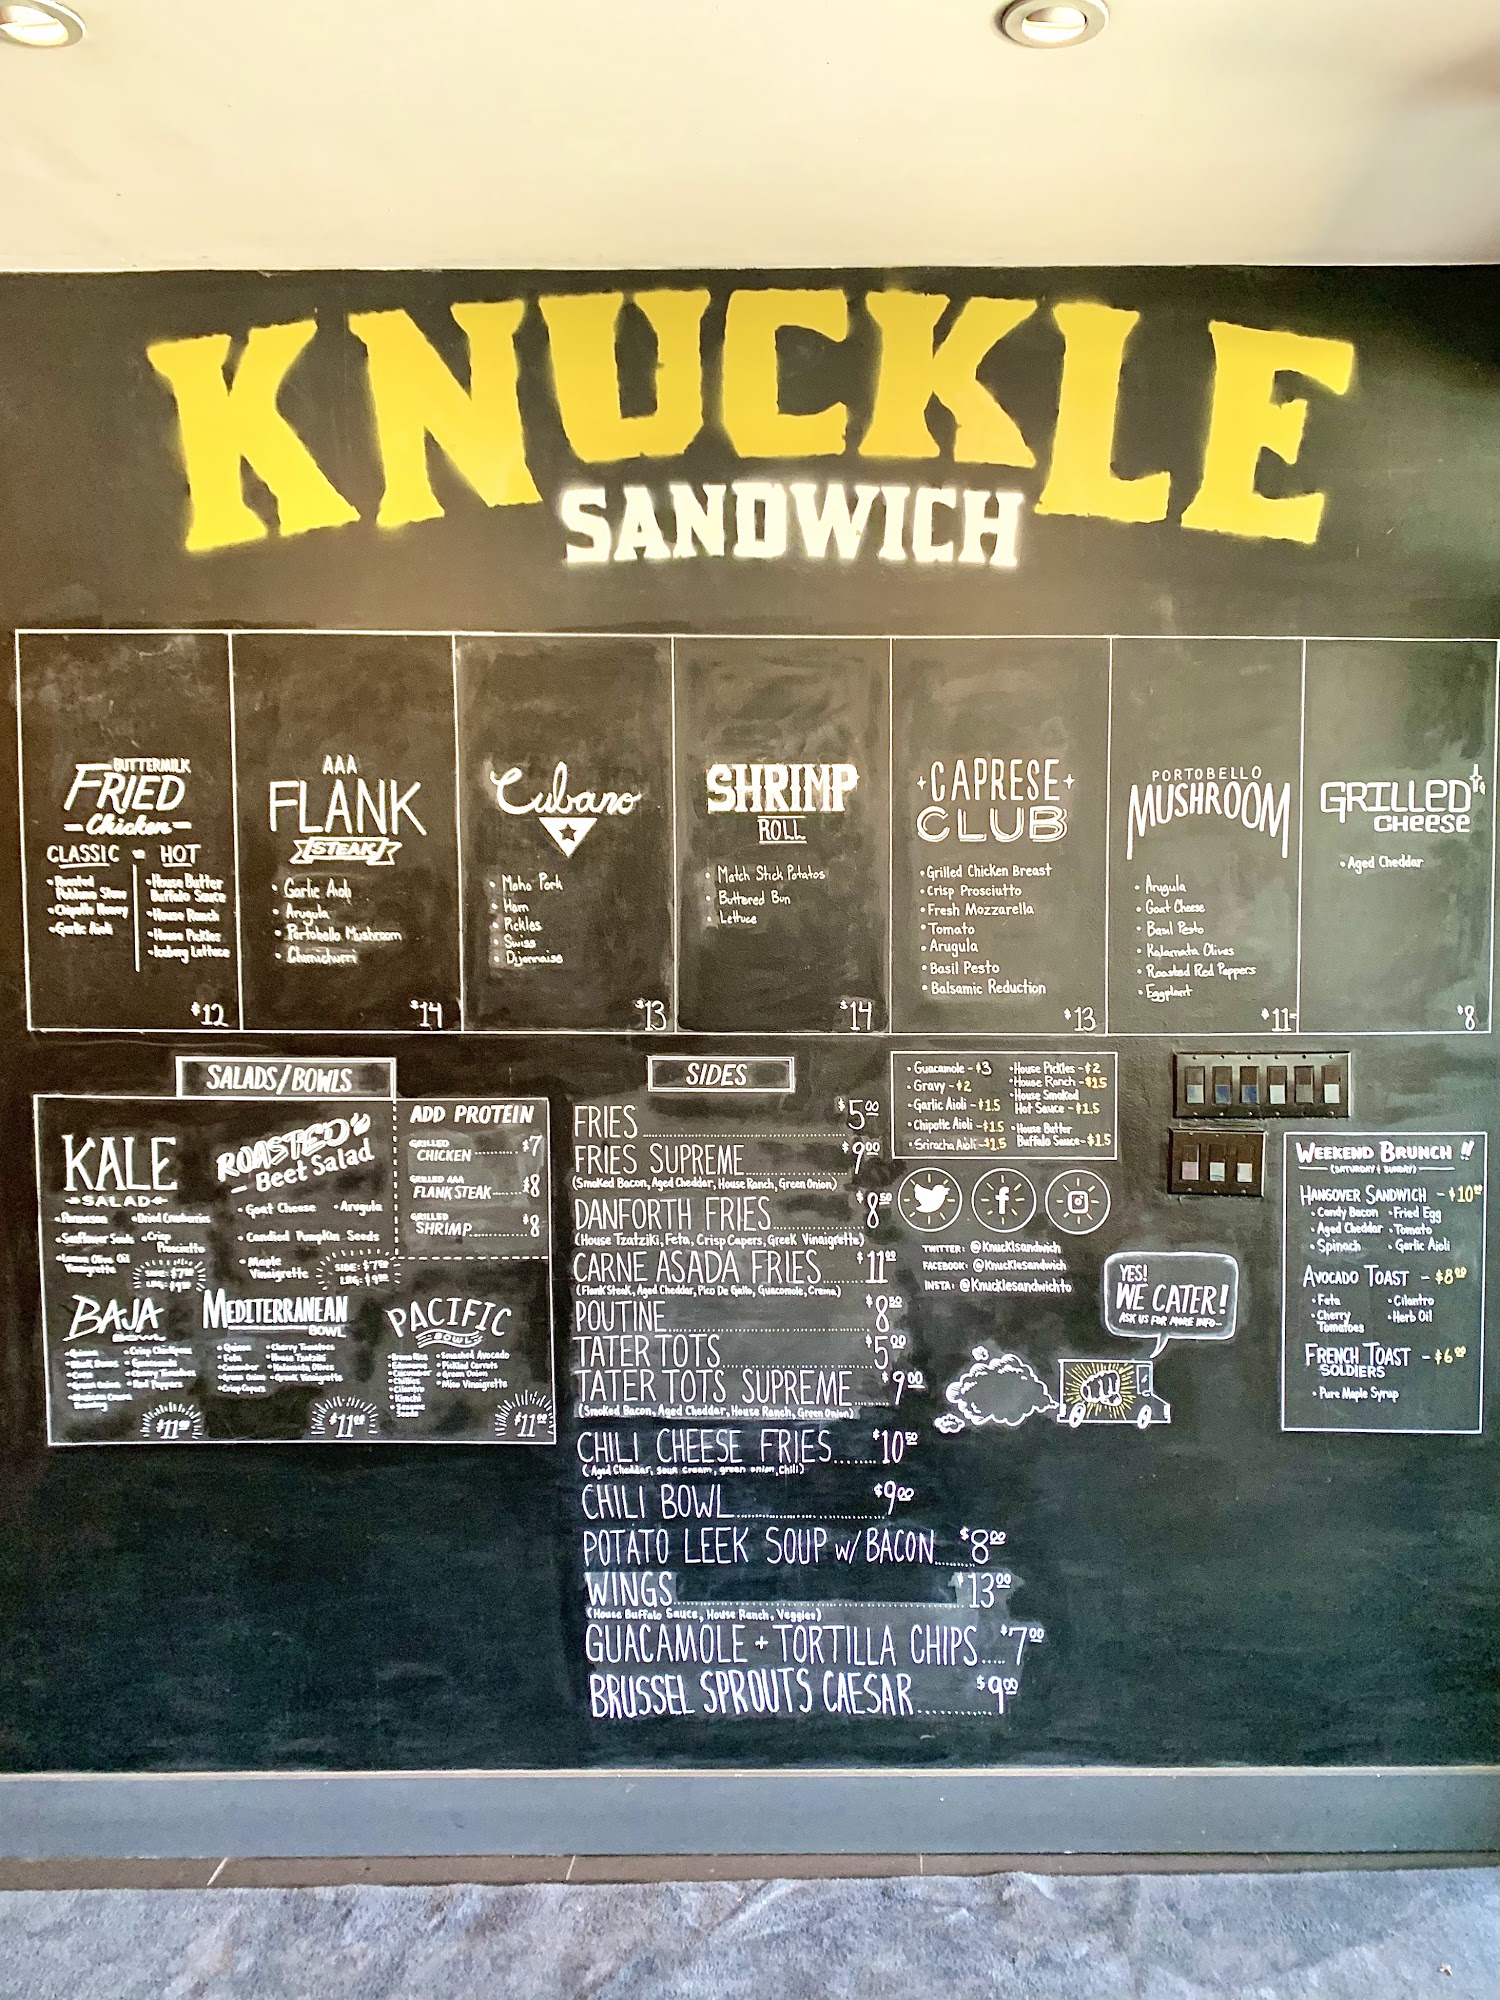 KNUCKLE
SANDWICH
BUTTERMILK
FRIED
Chicken
CLASSIC HOT
• Roasted
Poblano Slaw
• Chipotle Honey
• Garlic Aioli
• House Butter
Buffalo Sauce
• House Ranch
• House Pickles
• Iceberg Lettuce
$12
AAA
FLANK
STEAK
• Garlic Aioli
• Arugula
• Portobello Mushroom
• Chimichurri
$14
Cubano
• Moho Pork
• Ham
• Pickles
• Swiss
• Dijonnaise
$13
SHRIMP
ROLL
• Match Stick Potatos
• Buttered Bun
• Lettuce
$14
CAPRESE
CLUB
• Grilled Chicken Breast
• Crisp Prosciutto
• Fresh Mozzarella
• Tomato
• Arugula
• Basil Pesto
• Balsamic Reduction
$13
PORTOBELLO
MUSHROOM
• Arugula
• Goat Cheese
• Basil Pesto
• Kalamata Olives
• Roasted Red Peppers
• Eggplant
$11
GRILLED
CHEESE
• Aged Cheddar
$8
SALADS/BOWLS
KALE
SALAD
• Parmesan • Dried Cranberries
• Sunflower Seeds • Crisp
Prosciutto
• Lemon Olive Oil
Vinaigrette
SIDE: $7.50
LRG: $9.00
ROASTED
Beet Salad
• Goat Cheese • Arugula
• Candied Pumpkin Seeds
• Maple
Vinaigrette
SIDE: $7.50
LRG: $9.00
ADD PROTEIN
GRILLED
CHICKEN $7
GRILLED AAA
FLANK STEAK $8
GRILLED
SHRIMP $8
BAJA
BOWL
• Quinoa • Crisp Chickpeas
• Black Beans • Guacamole
• Corn • Cherry Tomatoes
• Green Onion • Red Peppers
$11.00
MEDITERRANEAN
BOWL
• Quinoa • Cherry Tomatoes
• Feta • House Tzatziki
• Cucumber • Kalamata Olives
• Green Onion • Greek Vinaigrette
• Crisp Capers
$11.00
PACIFIC
BOWL
• Brown Rice • Smashed Avocado
• Edamame • Pickled Carrots
• Cucumber • Green Onion
• Chillies • Miso Vinaigrette
• Cilantro
• Kimchi
• Sesame
Seeds
$11.00
SIDES
FRIES $5.00
FRIES SUPREME $9.00
(Smoked Bacon, Aged Cheddar, House Ranch, Green Onion)
DANFORTH FRIES $8.50
(House Tzatziki, Feta, Crisp Capers, Greek Vinaigrette)
CARNE ASADA FRIES $11.00
(Flank Steak, Aged Cheddar, Pico De Gallo, Guacamole, Crema)
POUTINE $8.50
TATER TOTS $5.00
TATER TOTS SUPREME $9.00
(Smoked Bacon, Aged Cheddar, House Ranch, Green Onion)
CHILI CHEESE FRIES $10.50
(Aged Cheddar, sour cream, green onion, Chili)
CHILI BOWL $9.00
POTATO LEEK SOUP w/ BACON $8.00
WINGS $13.00
(House Buffalo Sauce, House Ranch, Veggies)
GUACAMOLE + TORTILLA CHIPS $7.00
BRUSSEL SPROUTS CAESAR $9.00
• Guacamole - $3
• Gravy - $2
• Garlic Aioli - $1.5
• Chipotle Aioli - $1.5
• Sriracha Aioli - $1.5
• House Pickles - $2
• House Ranch - $1.5
• House Smoked
Hot Sauce - $1.5
• House Butter
Buffalo Sauce - $1.5
TWITTER: @Knucklsandwich
FACEBOOK: @KnuckleSandwich
INSTA: @Knucklesandwichto
YES!
WE CATER!
ASK US FOR MORE INFO
WEEKEND BRUNCH !!
(SATURDAY & SUNDAY)
HANGOVER SANDWICH - $10.00
• Candy Bacon • Fried Egg
• Aged Cheddar • Tomato
• Spinach • Garlic Aioli
AVOCADO TOAST - $8.00
• Feta • Cilantro
• Cherry • Herb Oil
Tomatoes
FRENCH TOAST - $6.00
SOLDIERS
• Pure Maple Syrup